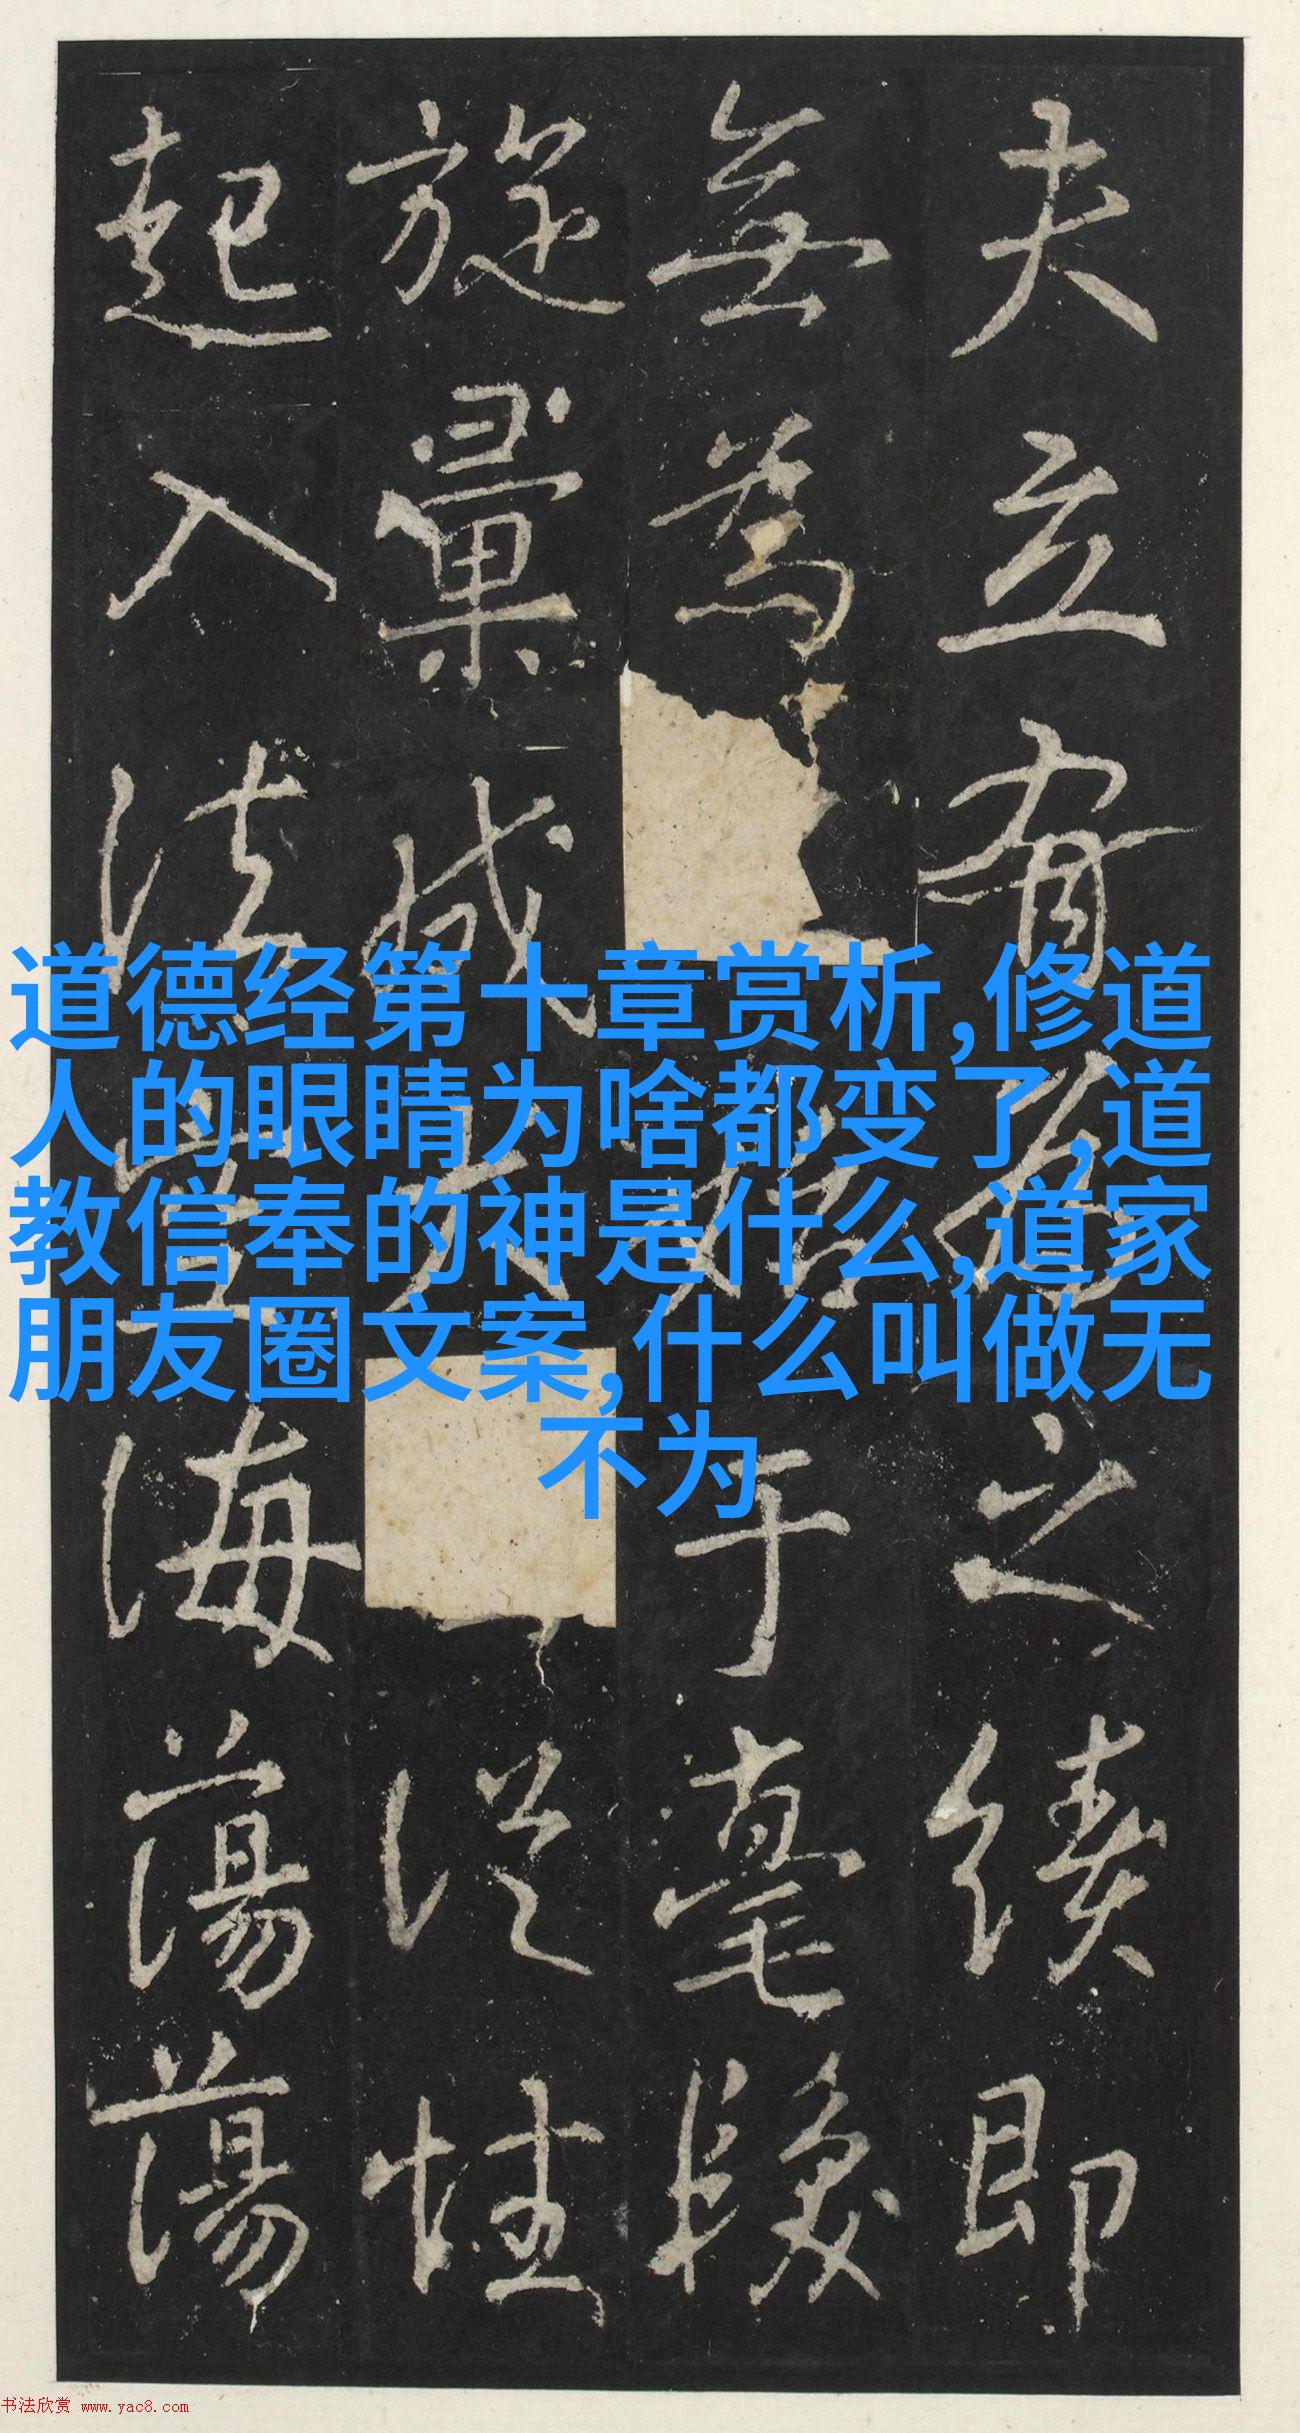 夫立有之績即
無為于毫
旋彙成從性
起入法海蕩蕩
道德经第十章赏析,修道
人的眼睛为啥都变了,道
教信奉的神是什么,道家
朋友圈文案,什么叫做无
不为
书法欣赏 www.yac8.com